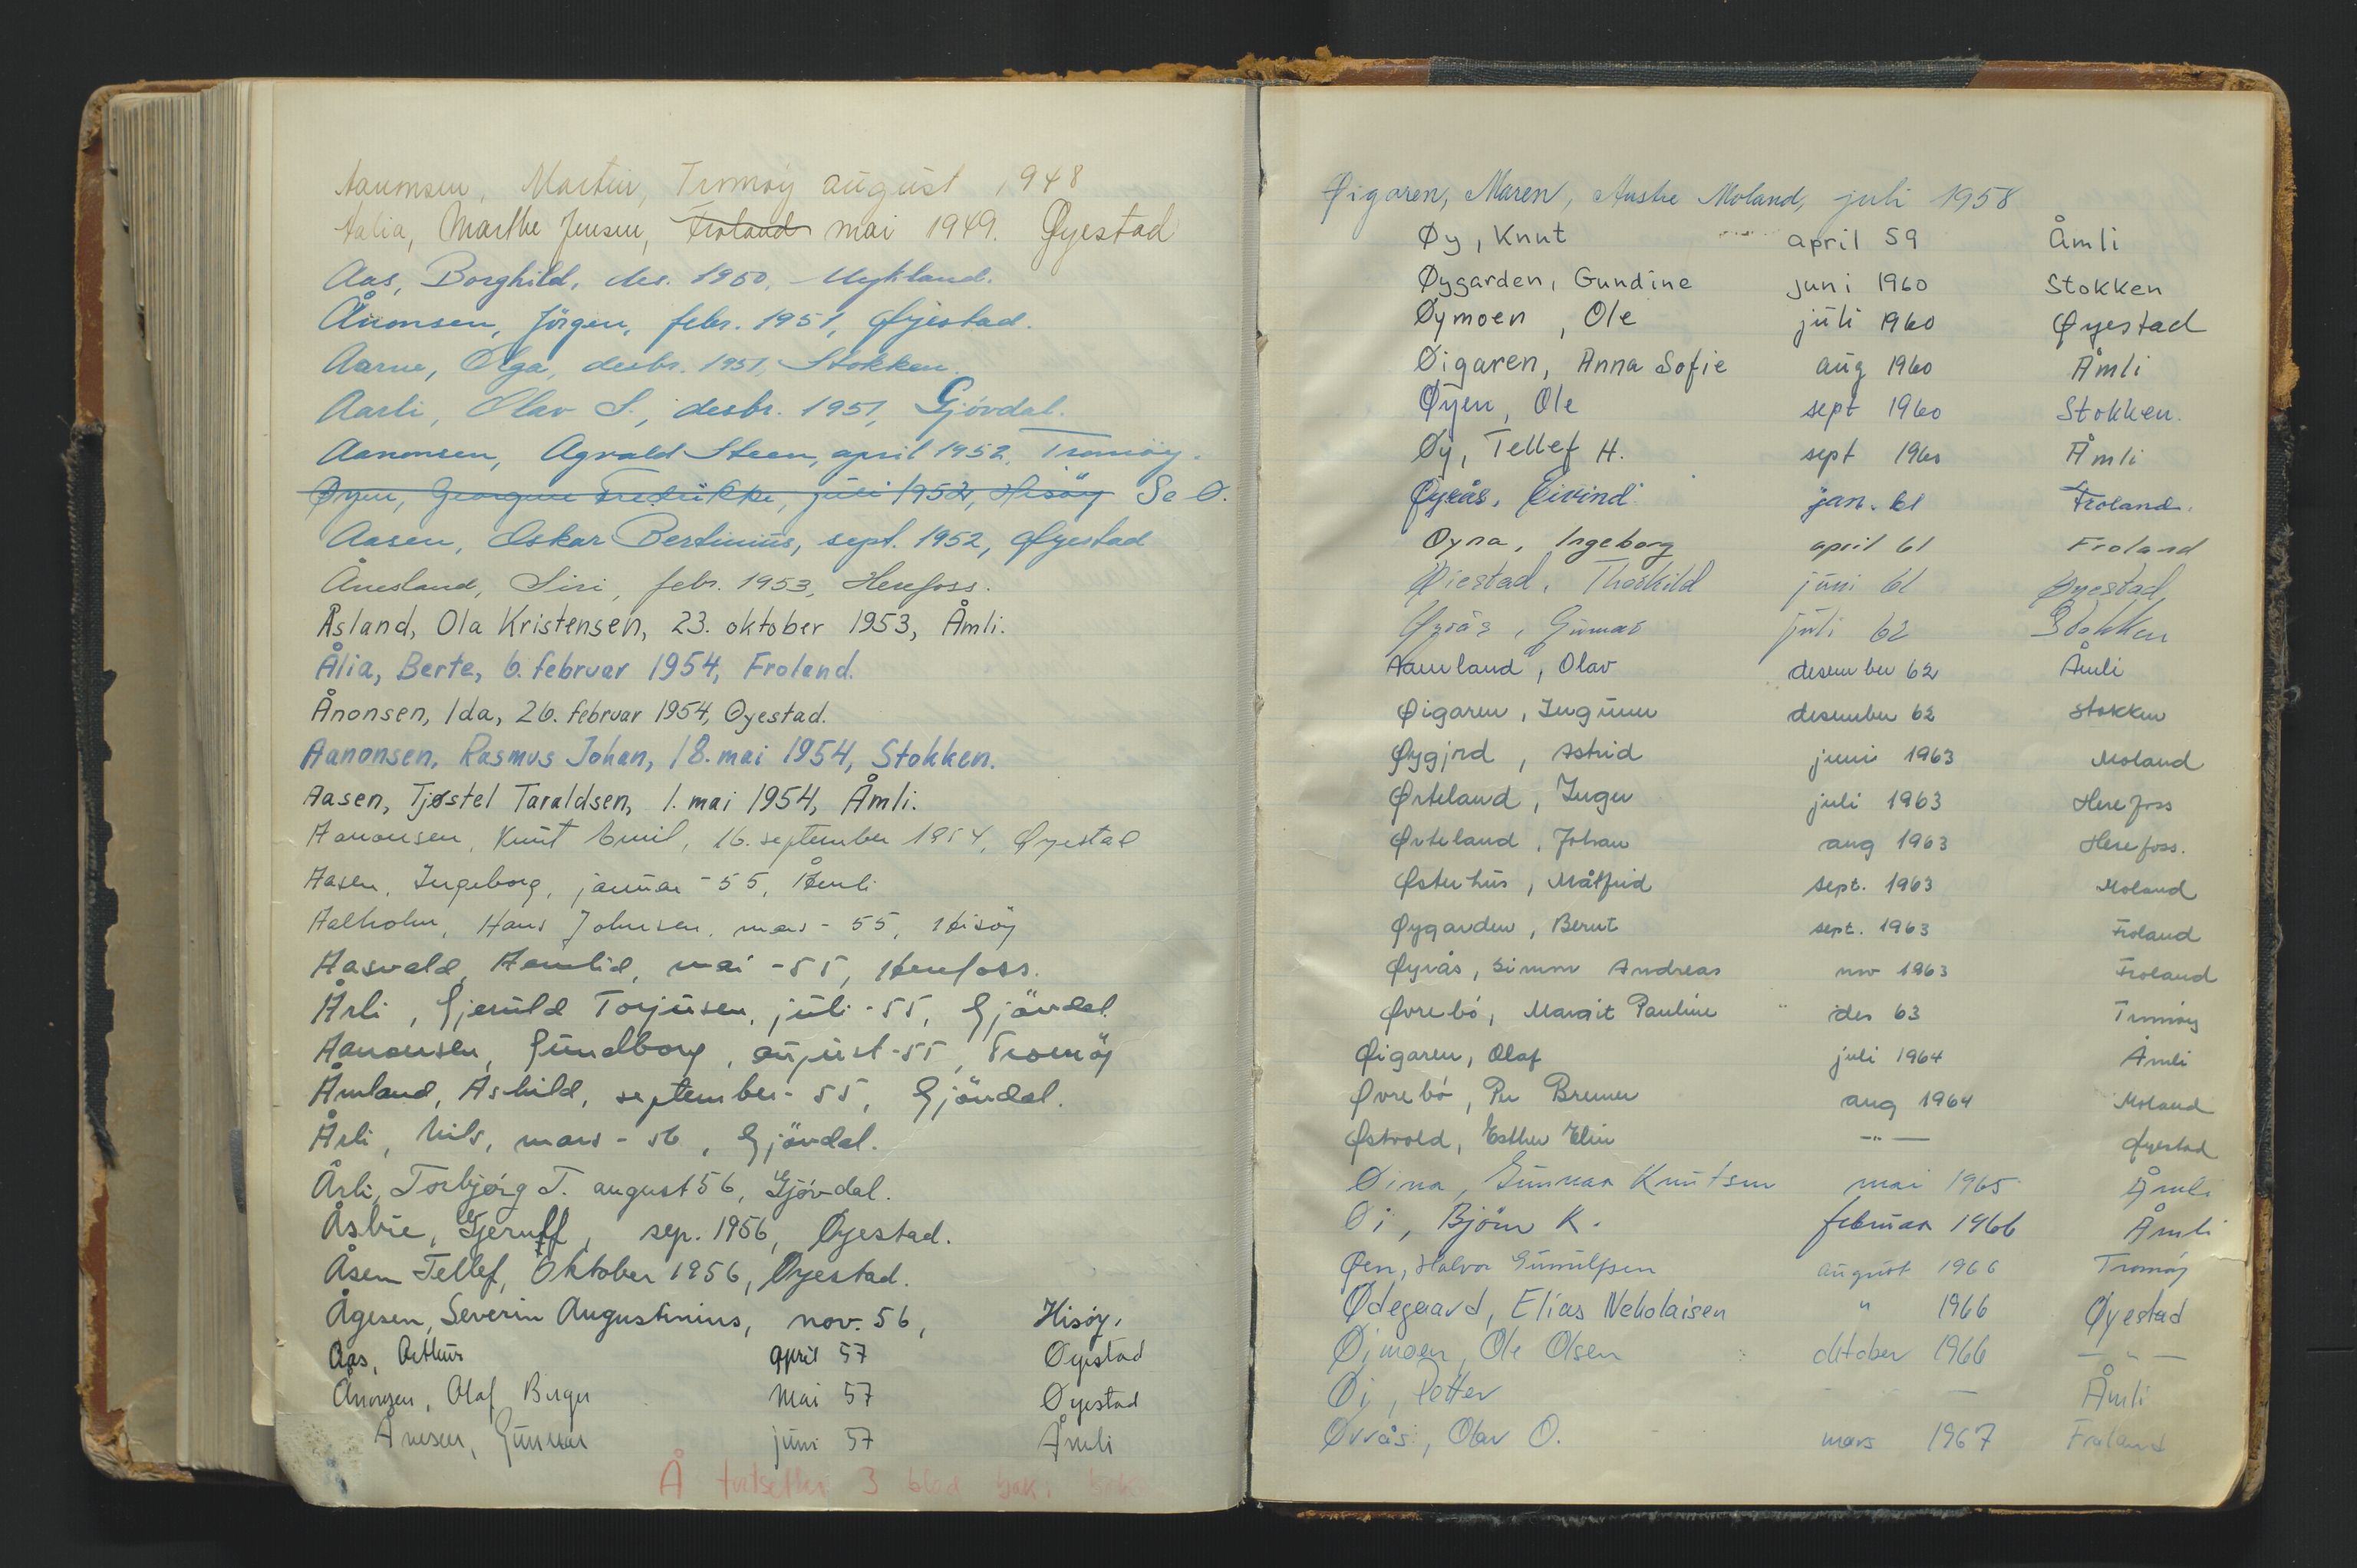 Aanonsen, Martin, Tromøy august 1948
Aalia, Marthe Jensen, Froland mai 1949. Øyestad
Aas, Borghild, des. 1950, Mykland.
Ånonsen, Jörgen, febr. 1951, Øyestad.
Aarne, Olga, desbr. 1951, Stokken.
Aarli, Olav S., desbr. 1951, Gjövdal.
Aanonsen, Agvald Steen, april 1952, Tromöy.
Øyen, Georgine Fredrikke, juli 1952, Hisöy Se Ø.
Aasen, Oskar Bertinius, sept. 1952, Øyestad
Ånesland, Siri, febr. 1953, Herefoss.
Åsland, Ola Kristensen, 23. oktober 1953, Åmli.
Ålia, Berte, 6. februar 1954, Froland.
Ånonsen, Ida, 26. februar 1954, Øyestad.
Aanonsen, Rasmus Johan, 18. mai 1954, Stokken.
Aasen, Tjøstel Taraldsen, 1. mai 1954, Åmli.
Aanonsen, Knut Emil, 16. september 1954, Øyestad
Aasen, Ingeborg, januar - 55, Åmli
Aalholm, Hans Johnsen, mars - 55, Hisöy
Aasvald, Aamlid, mai - 55, Herefoss.
Årli, Gjeruld Torjusen, juli - 55, Gjövdal.
Aanonsen, Gundborg, august - 55, Tromöy
Åmland, Åshild, september - 55, Gjövdal.
Årli, Nils, mars - 56, Gjövdal.
Årli, Torbjørg T. august 56, Gjövdal.
Åsbie, Gjeruff, sep. 1956, Øyestad.
Åsen Tellef, Oktober 1956, Øyestad.
Ågesen, Severin Augustinius, nov. 56, Hisöy.
Aas, Arthur april 57 Øyestad
Ånonsen, Olaf Birger mai 57 Øyestad
Ånesen, Gunnar juni 57 Åmli
Å fortsetter 3 blad bak i
Øigaren, Maren, Austre Moland, juli 1958
Øy, Knut april 59 Åmli
Øygarden, Gundine juni 1960 Stokken
Øymoen, Ole juli 1960 Øyestad
Øigaren, Anna Sofie aug 1960 Åmli
Øyen, Ole sept 1960 Stokken.
Øy, Tellef H. sept 1960 Åmli
Øyrås, Eivind jan. 61 Froland.
Øyna, Ingeborg april 61 Froland
Øiestad, Thorhild juni 61 Øyestad
Øyrås, Gunnar juli 62 Stokken
Aamland, Olav desember 62 Åmli
Øigaren, Ingunn desember 62 Stokken
Øygjrd, Astrid juni 1963 Moland
Ørteland, Inger juli 1963 Herefoss
Ørteland, Johan aug 1963 Herefoss.
Østerhus, Målfrid sept. 1963 Moland
Øygarden, Bernt sept. 1963 Froland
Øyrås, Simon Andreas nov 1963 Froland
Øvrebö, Margit Pauline des 63 Tromøy
Øigaren, Olaf juli 1964 Åmli
Øvrebö, Per Bremer aug 1964 Moland
Østvold, Esther Elin —"— Øyestad
Øina, Gunnar Knutsen mai 1965 Åmli
Øi, Björn K. februar 1966 Åmli
Øen, Halvor Gunulfsen august 1966 Tromöy
Ødegaard, Elias Nekolaisen " 1966 Øyestad
Øimoen, Ole Olsen oktober 1966 —"—
Øi, Petter — — Åmli
Øvrås, Olav O. mars 1967 Froland